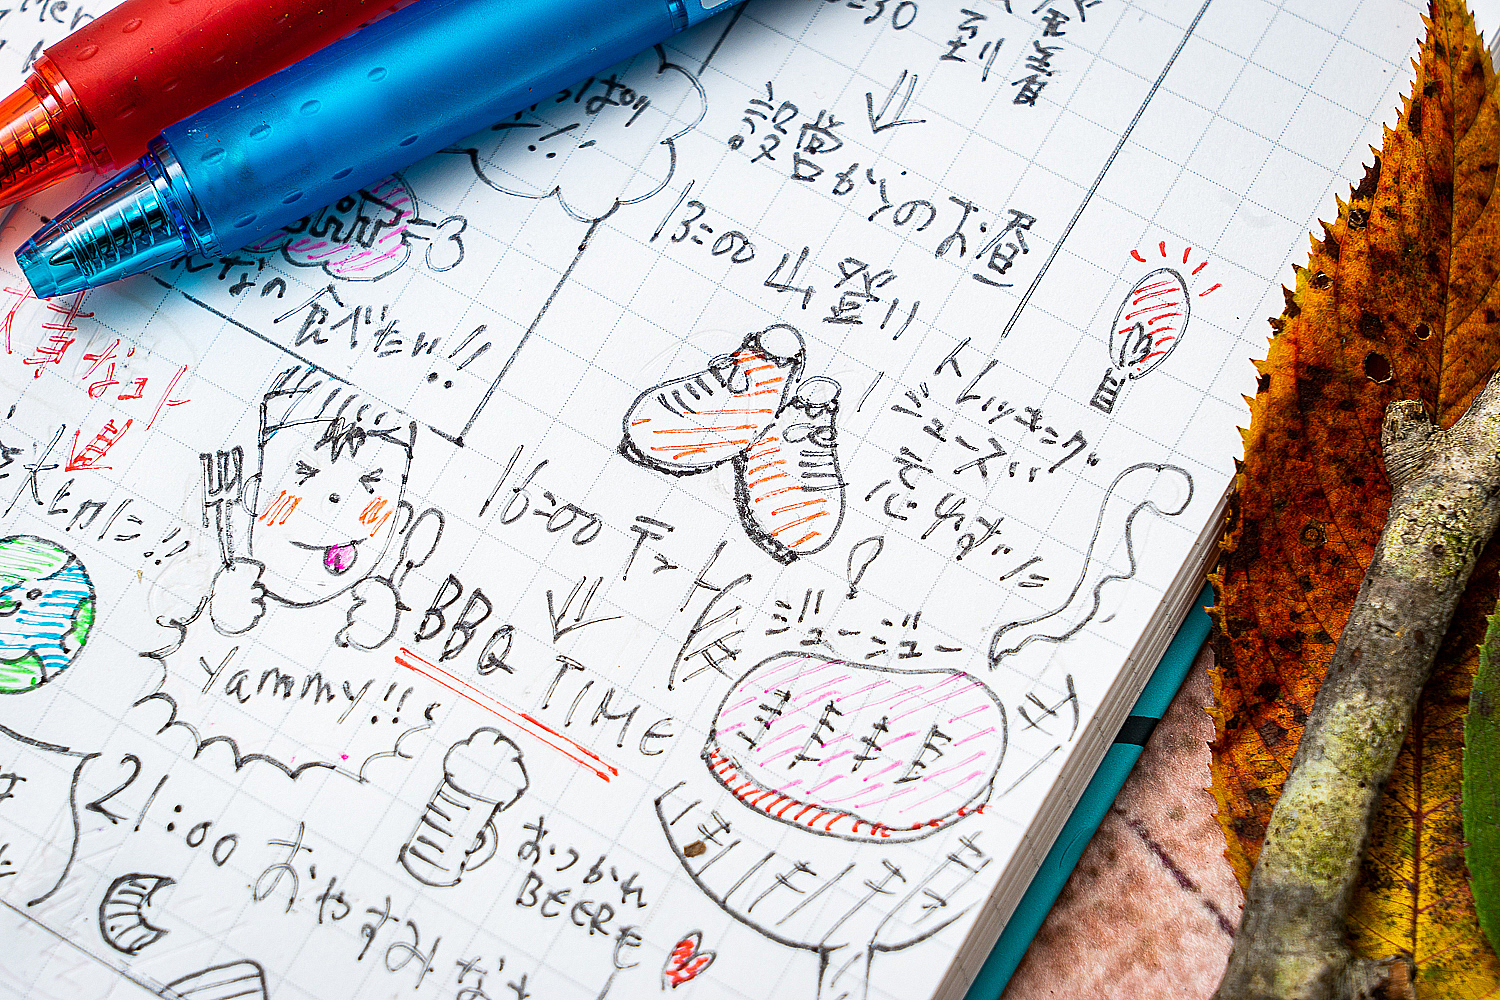 :30
到着
設営からのお昼
13:00 山登り
トレッキング
シューズ!!
忘れずに
食べたい!!
大事なコト
Yammy!!
16:00 テント
BBQ TIME
ジュージュー
21:00 おやすみなさ
おつかれ
BEERを